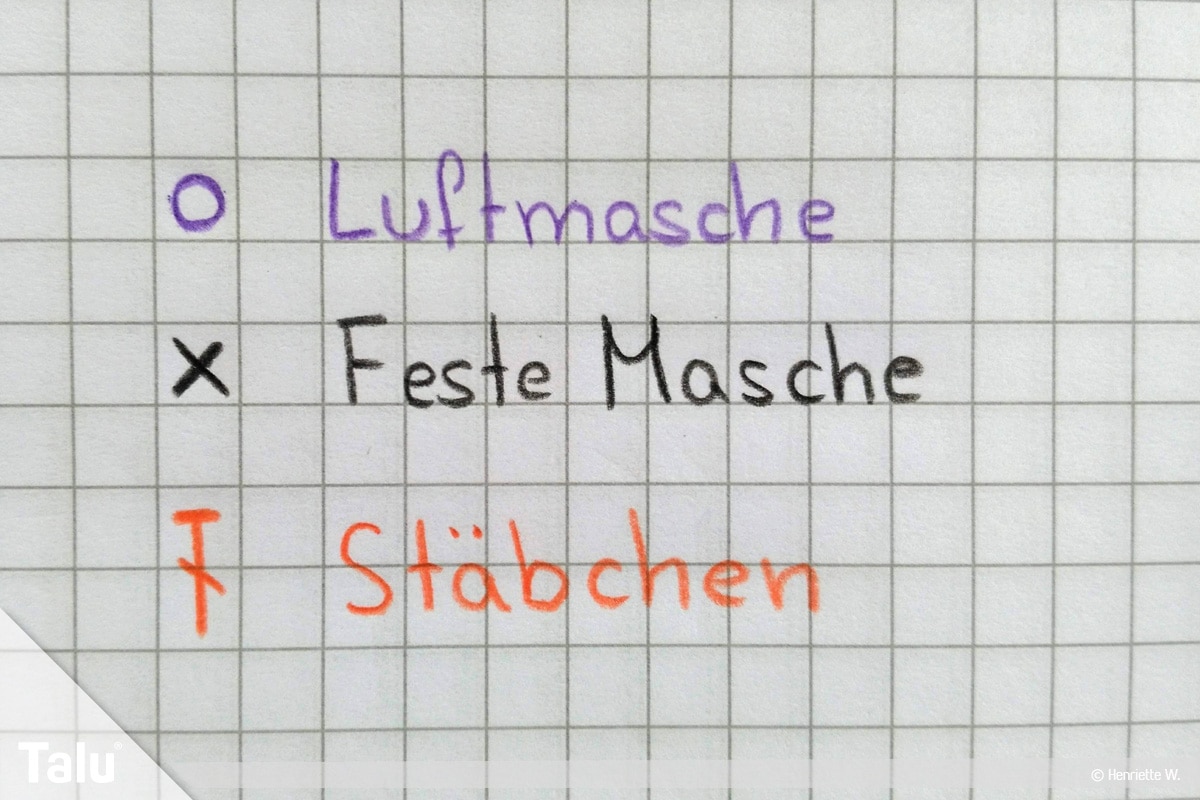 O Luftmasche
X Feste Masche
Ŧ Stäbchen
Talu
© Henriette W.